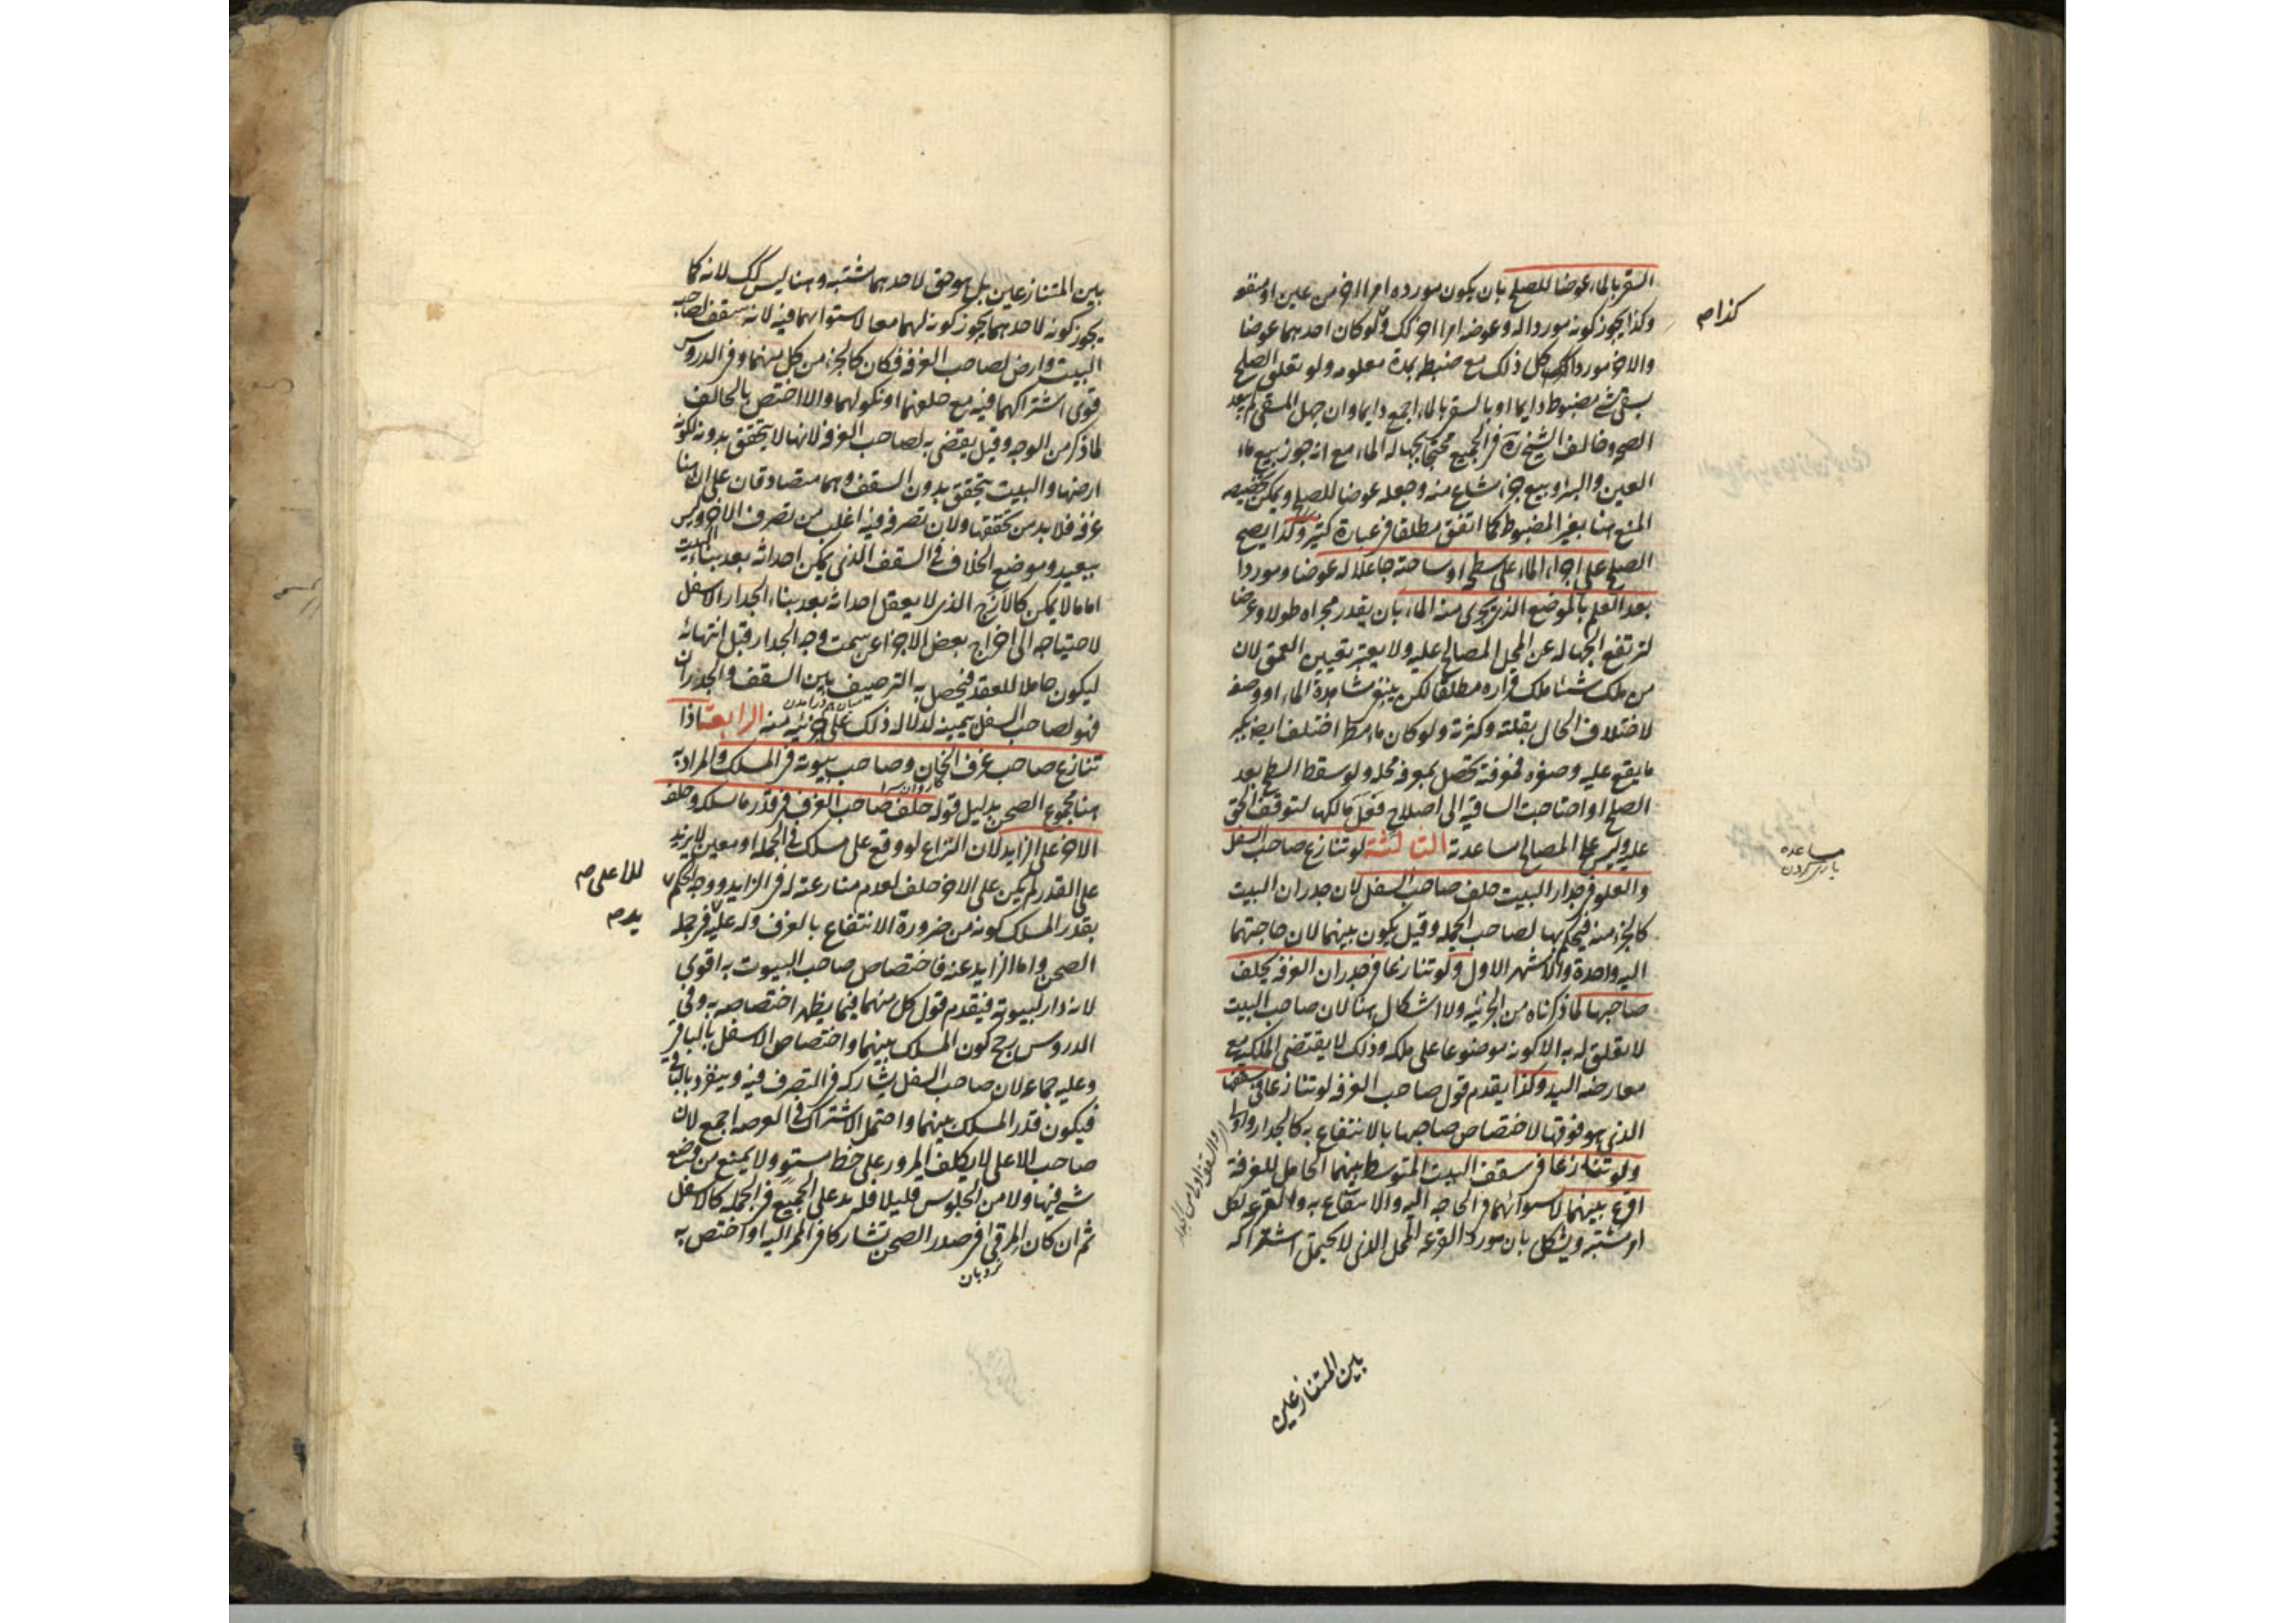 السقي بالماء عوضا للصلح بان يكون مورده امرا اخر من عين او منفعه
وكذا يجوز كونه موردا له وعوضه امرا اخر كك ولو كان احدهما عوضا
والاخر موردا كل ذلك مع ضبطه بمدة معلومه ولو تعلق الصلح
بسقي شئ مضبوط دايما او بالسقي بالماء اجمع دايما وان جهل المسقي لم يبعد
الصحه وخالف الشيخ ره في الجميع محتجا بجهاله الماء مع انه جوز بيع ماء
العين والبئر وبيع جزء مشاع منه وجعله عوضا للصلح ويمكن تخصيصه
المنع هنا بغير المضبوط كما اتفق مطلقا في عبارة كثير وكذا يصح
الصلح على اجراء الماء على سطحه او ساحته جاعلا له عوضا وموردا
بعد العلم بالموضع الذي يجري منه الماء بان يقدر مجراه طولا وعرضا
لترتفع الجهاله عن المحل المصالح عليه ولا يعتبر تعيين العمق لان
من ملك شيئا ملك قراره مطلقا لكن ينبغي مشاهدة الماء او وصفه
لاختلاف الحال بقلته وكثرته ولو كان ماء مطر اختلف ايضا بكبر
ما يقع عليه وصغره فمعرفته تحصل بمعرفه محله ولو سقط السطح بعد
الصلح او احتاجت الساقيه الى اصلاح فعلى مالكها لتوقف الحق
عليه وليس على المصالح مساعدته الثالثة لو تنازع صاحب السفل
والعلو في جدار البيت حلف صاحب السفل لان جدران البيت
كالجزء منه فيحكم بها لصاحب الجمله وقيل يكون بينهما لان حاجتهما
اليه واحدة والاشهر الاول ولو تنازعا في جدران الغرفه يحلف
صاحبها لما ذكرناه من الجزئيه ولا اشكال هنا لان صاحب البيت
لا تعلق له به الا كونه موضوعا على ملكه وذلك لا يقتضي الملكيه مع
معارضه اليد وكذا يقدم قول صاحب الغرفه لو تنازعا في سقفها
الذي هو فوقها لاختصاص صاحبها بالانتفاع به كالجدار واولى
ولو تنازعا في سقف البيت المتوسط بينهما الحامل للغرفة
اقرع بينهما لاستوائهما في الحاجه اليه والانتفاع به والقرعه لكل
امر مشتبه ويشكل بان مورد القرعه المحل الذي لا يحتمل اشتراكه
بين المتنازعين
كذا صح
مساعده
ياري كردن
بين المتنازعين بل هو حق لاحدهما مشتبه وهنا ليس كك لانه كما
يجوز كونه لاحدهما يجوز كونه لهما معا لاستوائهما فيه لانه سقف لصاحب
البيت وارض لصاحب الغرفه فكان كالجزء من كل منهما وفي الدروس
قوى اشتراكهما فيه مع حلفهما او نكولهما والا اختص بالحالف
لما ذكر من الوجه وقيل يقضى به لصاحب الغرفه لانها لا تتحقق بدونه لكونه
ارضها والبيت يتحقق بدون السقف وهما متصادقان على ان هنا
غرفه فلا بد من تحققها ولان تصرفه فيه اغلب من تصرف الاخر وليس
ببعيد وموضع الخلاف في السقف الذي يمكن احداثه بعد بناء البيت
اما ما لا يمكن كالازج الذي لا يعقل احداثه بعد بناء الجدار الاسفل
لاحتياجه الى اخراج بعض الاجزاء عن سمت وجه الجدار قبل انتهائه
ليكون حاملا للعقد فيحصل به الترصيف بين السقف والجدران
فهو لصاحب السفل بيمينه لدلاله ذلك على جزئيه منه الرابعة اذا
تنازع صاحب غرف الخان وصاحب بيوته في المسلك والمراد به
كاروانسرا
هنا مجموع الصحن بدليل قوله حلف صاحب الغرف في قدر ما يسلكه وحلف
الاخر على الزايد لان النزاع لو وقع على مسلك في الجمله او معين لا يزيد
على القدر لم يكن على الاخر حلف لعدم منازعته له في الزايد ووجه الحكم
للاعلى صح
بقدر المسلك كونه من ضرورة الانتفاع بالغرف وله عليه في جمله
يد صح
الصحن واما الزايد عنه فاختصاص صاحب البيوت به اقوى
لانه دار لبيوته فيقدم قول كل منهما فيما يظهر اختصاصه به وفي
الدروس رجح كون المسلك بينهما واختصاص الاسفل بالباقي
وعليه جماعه لان صاحب السفل يشاركه في التصرف فيه وينفرد بالباقي
فيكون قدر المسلك بينهما واحتمل الاشتراك في العرصه اجمع لان
صاحب الاعلى لا يكلف المرور على خط مستو ولا يمنع من وضع
شئ فيها ولا من الجلوس قليلا فله يد على الجميع في الجمله كالاسفل
ثم ان كان المرقى في صدر الصحن تشاركا في الممر اليه او اختص به
نردبان